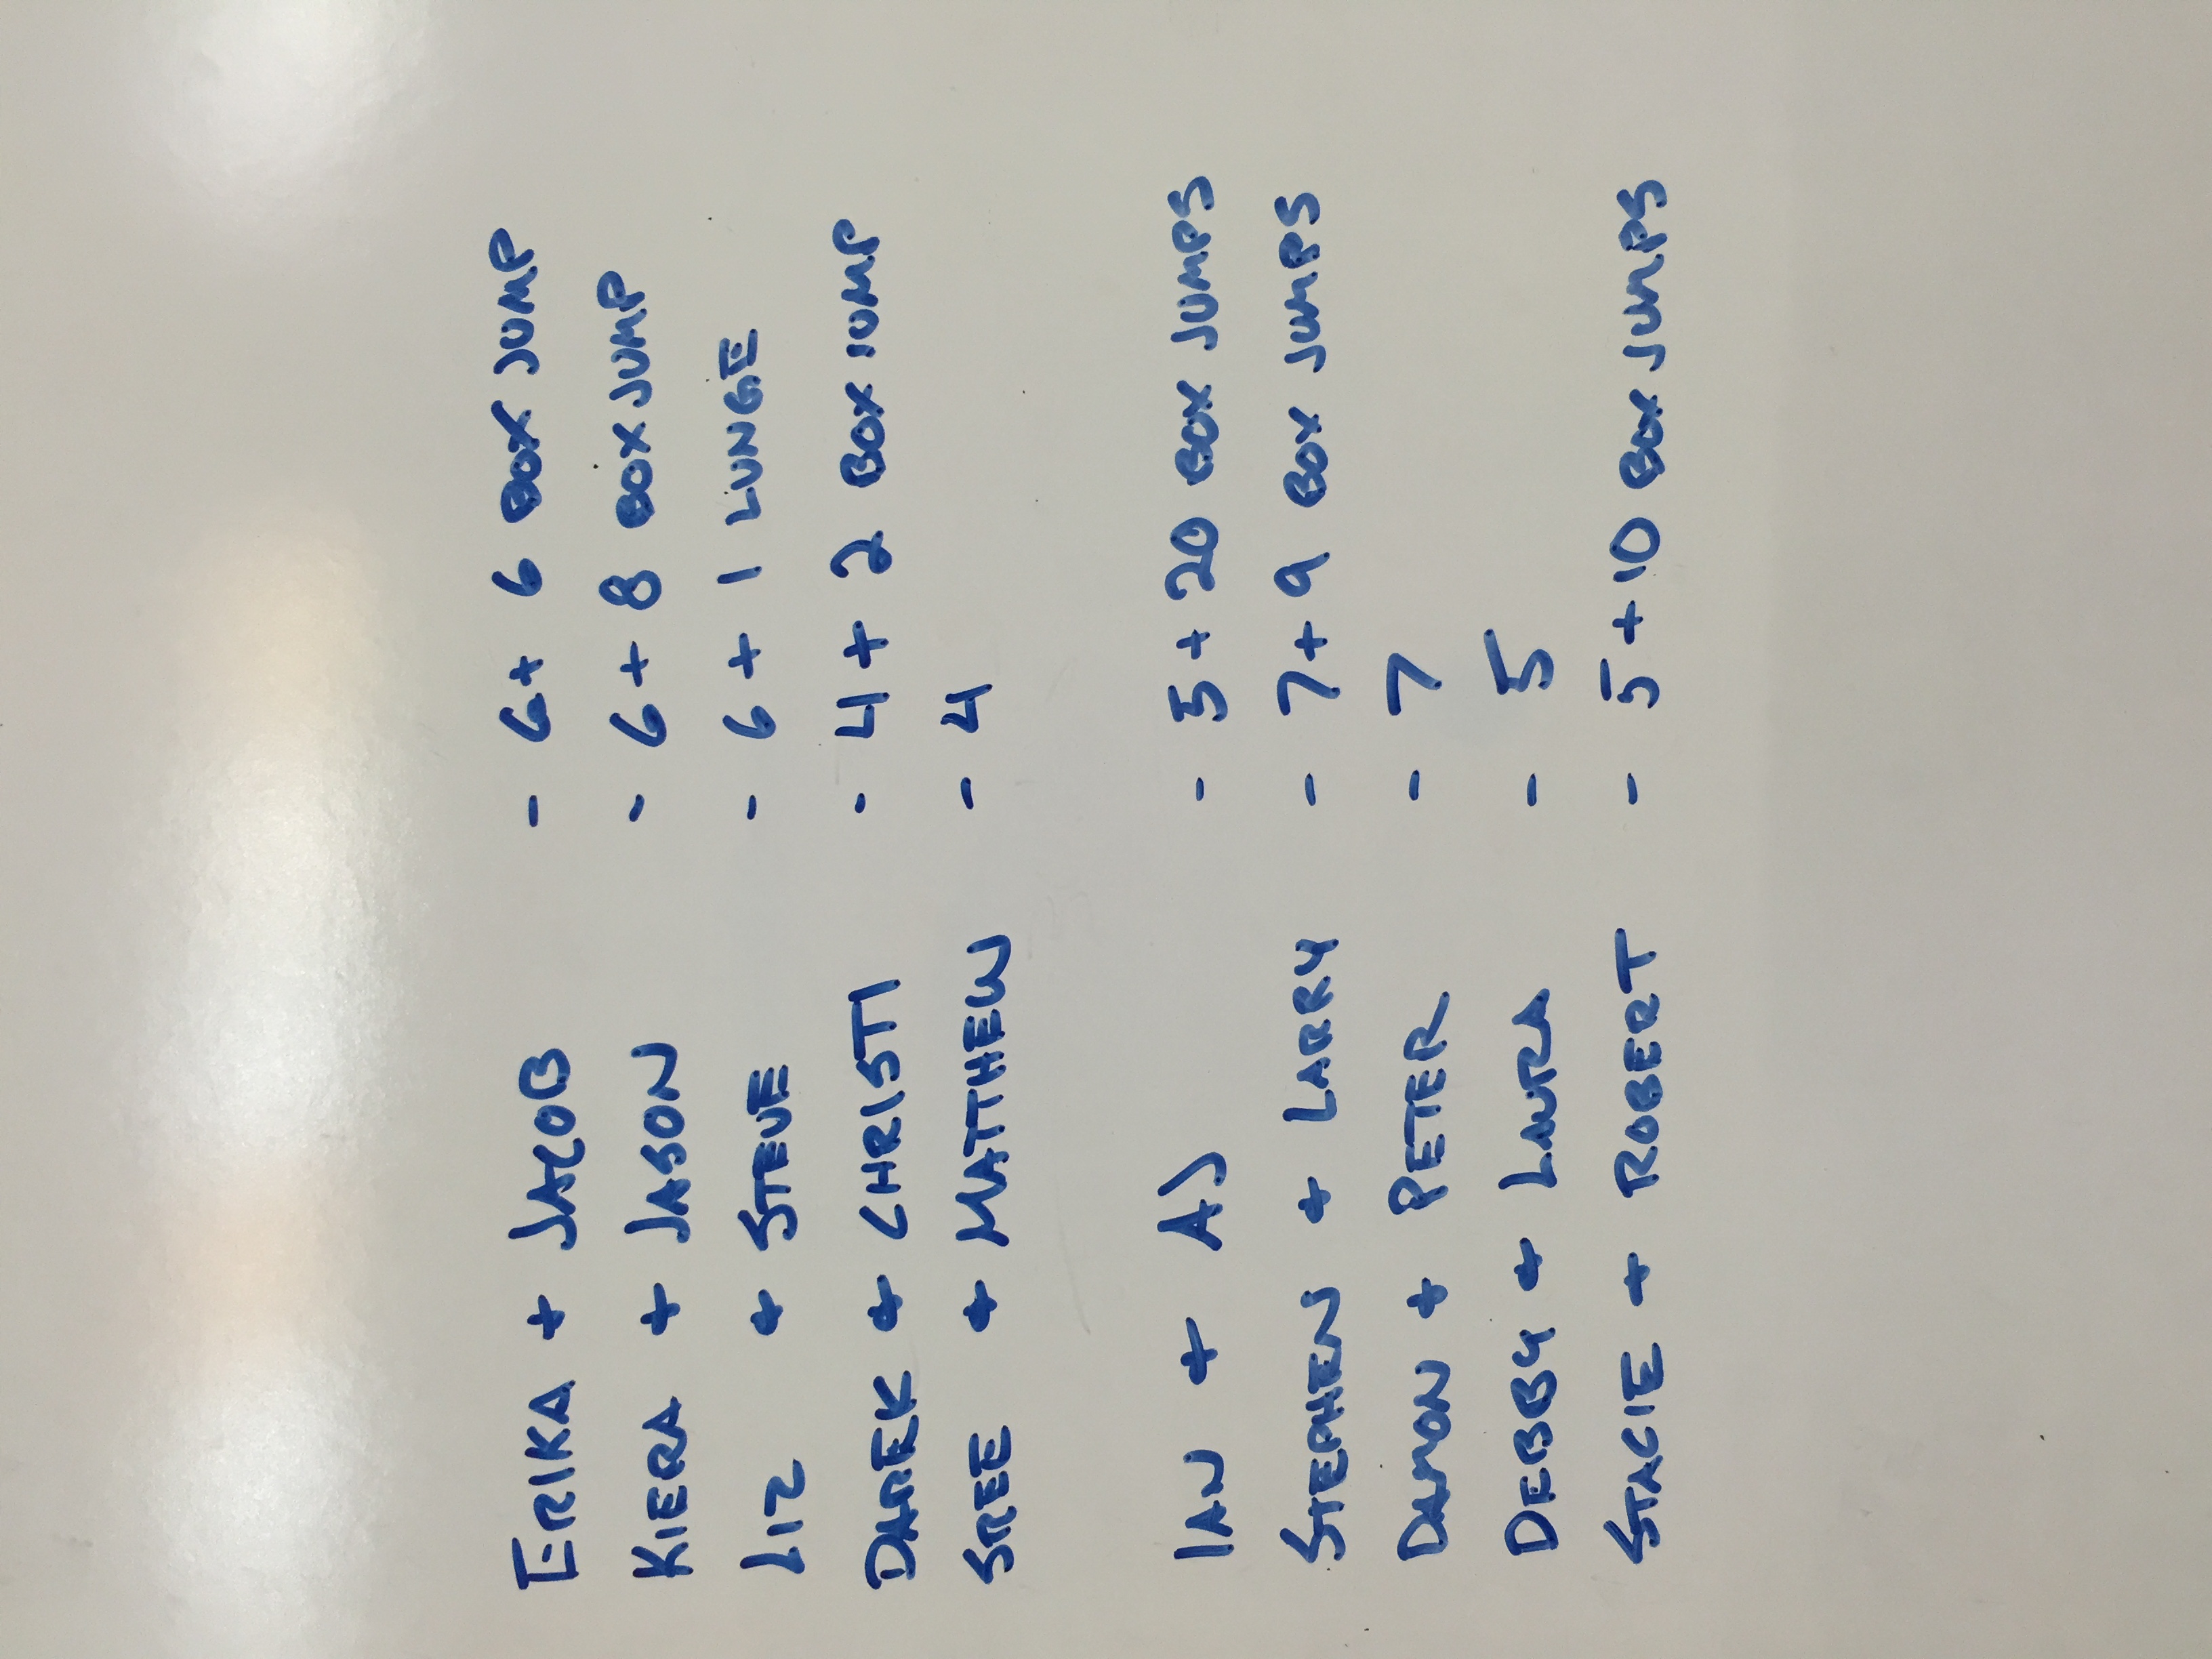 ERIKA + JACOB - 6+ 6 BOX JUMP
KIERA + JASON - 6 + 8 BOX JUMP
LIZ + STEVE - 6 + 1 LUNGE
DAREK + CHRISTI - 4 + 2 BOX JUMP
SREE + MATTHEW - 4
IAN + AJ - 5 + 20 BOX JUMPS
STEPHEN + LARRY - 7 + 9 BOX JUMPS
DAMON + PETER - 7
DEBBY + LAURA - 5
STACIE + ROBERT - 5 + 10 BOX JUMPS